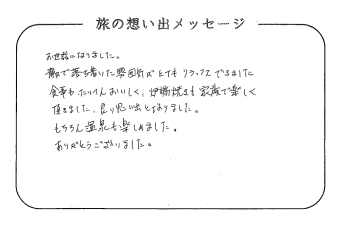 旅の想い出メッセージ
お世話になりました。
静で落ち着いた雰囲気がとても リラックスできました
食事もたいへんおいしく、炉端焼きも家族で楽しく
頂きました。良い思い出となりました。
もちろん温泉も楽しめました。
ありがとうございました。